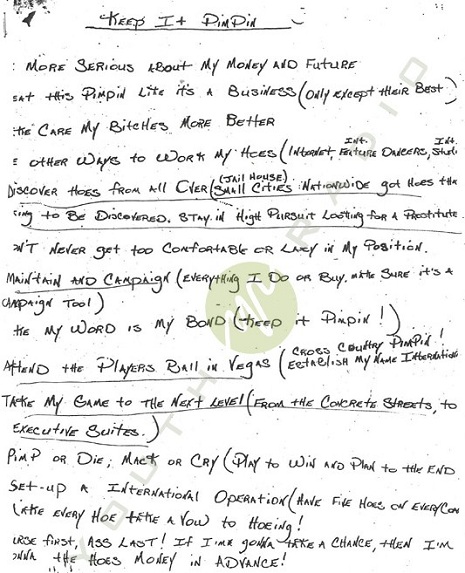 KEEP IT PIMPIN
: MORE SERIOUS ABOUT MY MONEY AND FUTURE
EAT THIS PIMPIN LIKE IT'S A BUSINESS (ONLY EXCEPT THEIR BEST)
CARE MY BITCHES MORE BETTER
OTHER WAYS TO WORK MY HOES (INTERNET, INT. FEATURE DANCERS, INT.
DISCOVER HOES FROM ALL OVER (JAIL HOUSE) (SMALL CITIES NATIONWIDE GOT HOES
TO BE DISCOVERED. STAY IN HIGH PURSUIT LOOKING FOR A PROSTITUTE.
ON'T NEVER GET TOO COMFORTABLE OR LAZY IN MY POSITION.
MAINTAIN AND CAMPAIGN (EVERYTHING I DO OR BUY. MAKE SURE IT'S A
AMPAIGN TOOL)
KE MY WORD IS MY BOND (KEEP IT PIMPIN!)
ATTEND THE PLAYERS BALL IN VEGAS (CROSS COUNTRY PIMPIN!
ESTABLISH MY NAME INTERNATION
TAKE MY GAME TO THE NEXT LEVEL (FROM THE CONCRETE STREETS, TO
EXECUTIVE SUITES.)
PIMP OR DIE, MACK OR CRY (PLAY TO WIN AND PLAN TO THE END
SET-UP A INTERNATIONAL OPERATION (HAVE FIVE HOES ON EVERY CON
AKE EVERY HOE TAKE A VOW TO HOEING!
URSE FIRST, ASS LAST! IF I'ME GONNA TAKE A CHANCE, THEN I'M
ONNA THE HOES MONEY IN ADVANCE!
YOUTH RADIO